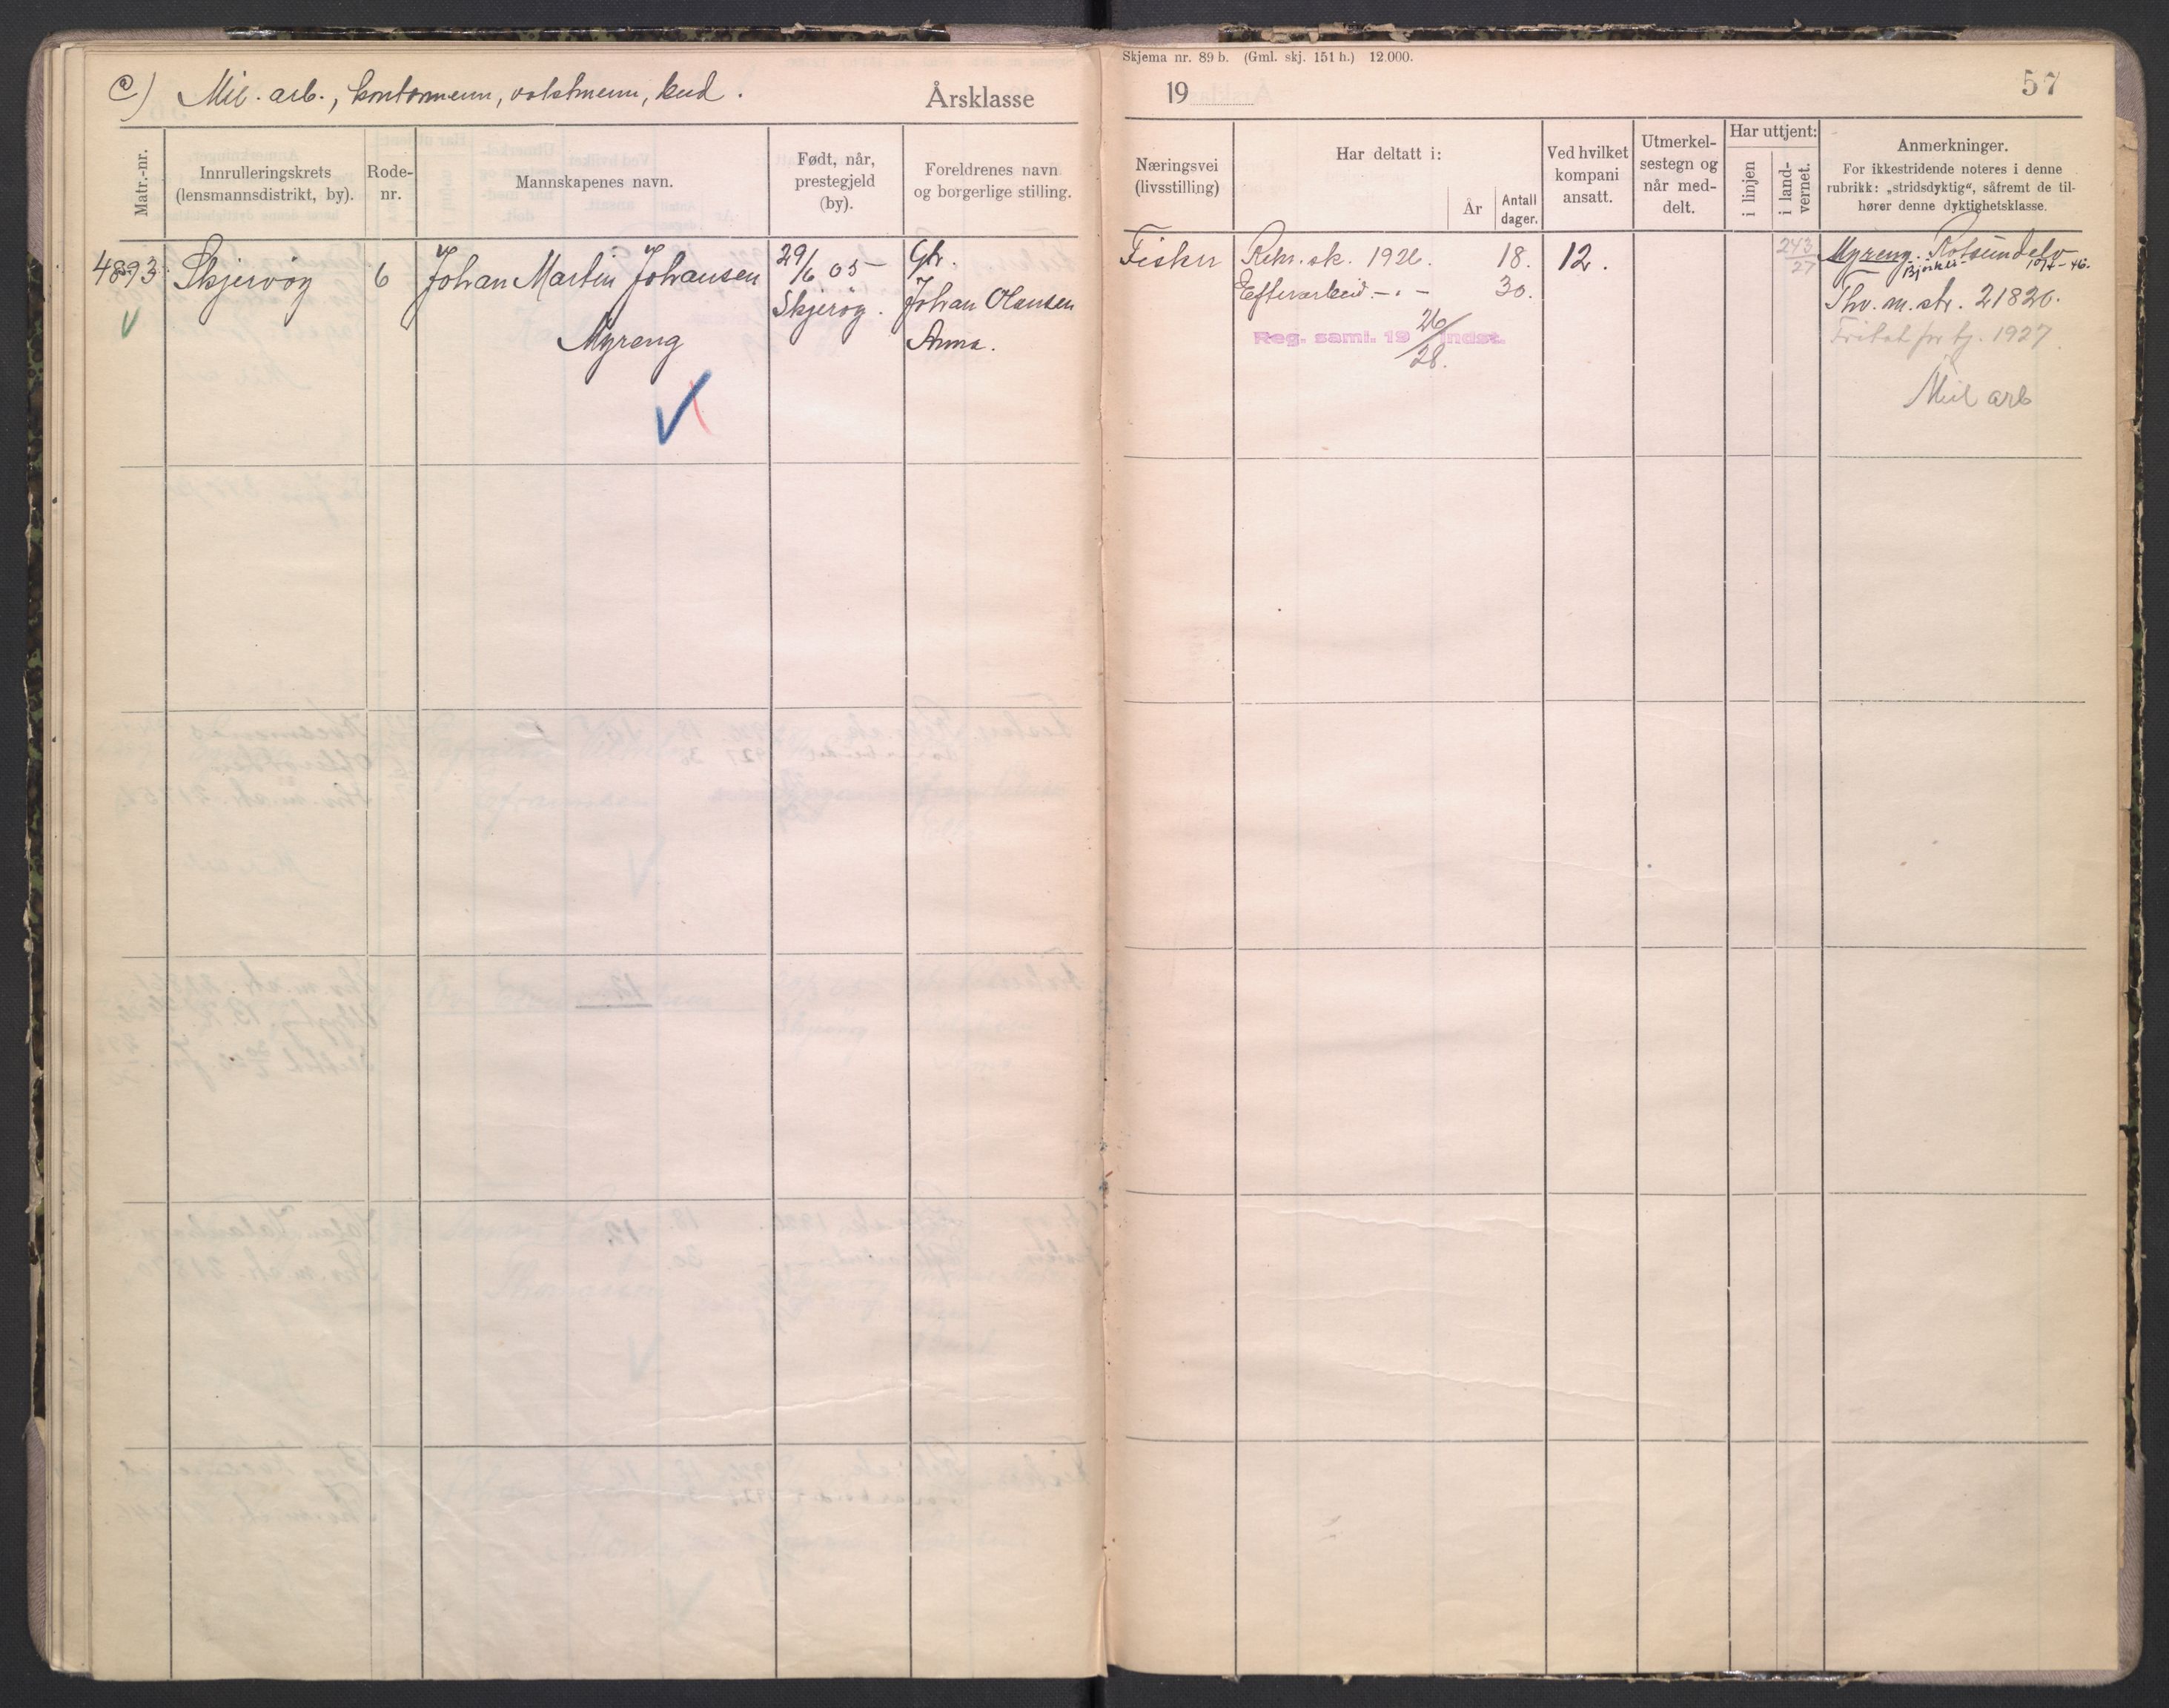 Skjema nr. 89 b. (Gml. skj. 151 h.) 12.000.
c) Mil. arb., kontormenn, vaktmenn, bud.
Årsklasse 19
57
Matr.-nr.
Innrulleringskrets
(lensmannsdistrikt, by).
Rode-
nr.
Mannskapenes navn.
Født, når,
prestegjeld
(by).
Foreldrenes navn
og borgerlige stilling.
Næringsvei
(livsstilling)
Har deltatt i:
År
Antall
dager.
Ved hvilket
kompani
ansatt.
Utmerkel-
sestegn og
når med-
delt.
Har uttjent:
i linjen
i land-
vernet.
Anmerkninger.
For ikkestridende noteres i denne
rubrikk: „stridsdyktig“, såfremt de til-
hører denne dyktighetsklasse.
4893
Skjervøy
6
Johan Martin Johansen
Myreng
29/6 05
Skjerøy.
Gbr.
Johan Olausen
Anna.
Fisker
Rekr. sk. 1926. 18.
Efterarbeid - " - 30.
Reg. saml. 19 26/28. indst.
12.
243
27
Myreng. Rotsundelv
Bjørkli
Thv. m. str. 21820.
Fritat for tj. 1927.
Mil arb